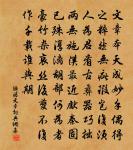 文章本天成妙手偶得
之粹然無疵瑕豈復須
人為君看古彝器巧拙
兩無施漢最近先秦固
已殊淳漓胡部何為者
豪竹雜哀絲后夔不復
作千載誰與期